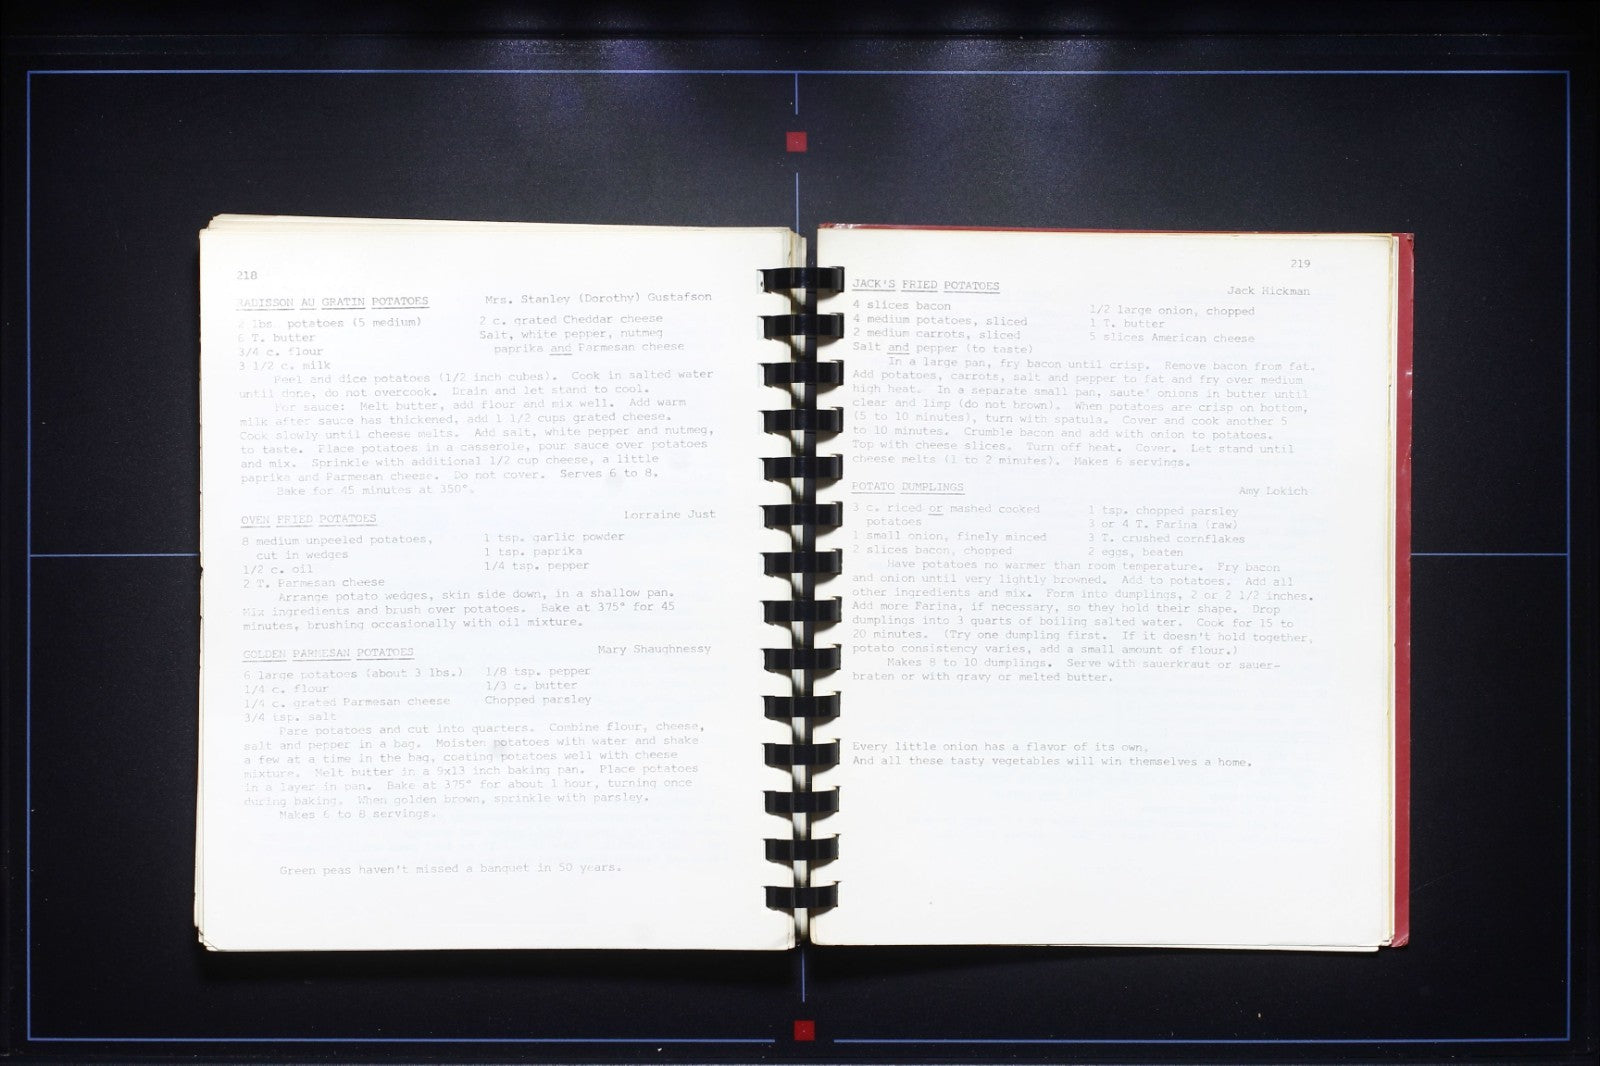 218
RADISSON AU GRATIN POTATOES
Mrs. Stanley (Dorothy) Gustafson
2 lbs. potatoes (5 medium)
6 T. butter
3/4 c. flour
3 1/2 c. milk
2 c. grated Cheddar cheese
Salt, white pepper, nutmeg
paprika and Parmesan cheese
Peel and dice potatoes (1/2 inch cubes). Cook in salted water
until done, do not overcook. Drain and let stand to cool.
For sauce: Melt butter, add flour and mix well. Add warm
milk after sauce has thickened, add 1 1/2 cups grated cheese.
Cook slowly until cheese melts. Add salt, white pepper and nutmeg,
to taste. Place potatoes in a casserole, pour sauce over potatoes
and mix. Sprinkle with additional 1/2 cup cheese, a little
paprika and Parmesan cheese. Do not cover. Serves 6 to 8.
Bake for 45 minutes at 350°.
OVEN FRIED POTATOES
Lorraine Just
8 medium unpeeled potatoes,
cut in wedges
1/2 c. oil
2 T. Parmesan cheese
1 tsp. garlic powder
1 tsp. paprika
1/4 tsp. pepper
Arrange potato wedges, skin side down, in a shallow pan.
Mix ingredients and brush over potatoes. Bake at 375° for 45
minutes, brushing occasionally with oil mixture.
GOLDEN PARMESAN POTATOES
Mary Shaughnessy
6 large potatoes (about 3 lbs.)
1/4 c. flour
1/4 c. grated Parmesan cheese
3/4 tsp. salt
1/8 tsp. pepper
1/3 c. butter
Chopped parsley
Pare potatoes and cut into quarters. Combine flour, cheese,
salt and pepper in a bag. Moisten potatoes with water and shake
a few at a time in the bag, coating potatoes well with cheese
mixture. Melt butter in a 9x13 inch baking pan. Place potatoes
in a layer in pan. Bake at 375° for about 1 hour, turning once
during baking. When golden brown, sprinkle with parsley.
Makes 6 to 8 servings.
Green peas haven't missed a banquet in 50 years.
219
JACK'S FRIED POTATOES
Jack Hickman
4 slices bacon
4 medium potatoes, sliced
2 medium carrots, sliced
Salt and pepper (to taste)
1/2 large onion, chopped
1 T. butter
5 slices American cheese
In a large pan, fry bacon until crisp. Remove bacon from fat.
Add potatoes, carrots, salt and pepper to fat and fry over medium
high heat. In a separate small pan, saute' onions in butter until
clear and limp (do not brown). When potatoes are crisp on bottom,
(5 to 10 minutes), turn with spatula. Cover and cook another 5
to 10 minutes. Crumble bacon and add with onion to potatoes.
Top with cheese slices. Turn off heat. Cover. Let stand until
cheese melts (1 to 2 minutes). Makes 6 servings.
POTATO DUMPLINGS
Amy Lokich
3 c. riced or mashed cooked
potatoes
1 small onion, finely minced
2 slices bacon, chopped
1 tsp. chopped parsley
3 or 4 T. Farina (raw)
3 T. crushed cornflakes
2 eggs, beaten
Have potatoes no warmer than room temperature. Fry bacon
and onion until very lightly browned. Add to potatoes. Add all
other ingredients and mix. Form into dumplings, 2 or 2 1/2 inches.
Add more Farina, if necessary, so they hold their shape. Drop
dumplings into 3 quarts of boiling salted water. Cook for 15 to
20 minutes. (Try one dumpling first. If it doesn't hold together,
potato consistency varies, add a small amount of flour.)
Makes 8 to 10 dumplings. Serve with sauerkraut or sauer-
braten or with gravy or melted butter.
Every little onion has a flavor of its own,
And all these tasty vegetables will win themselves a home.